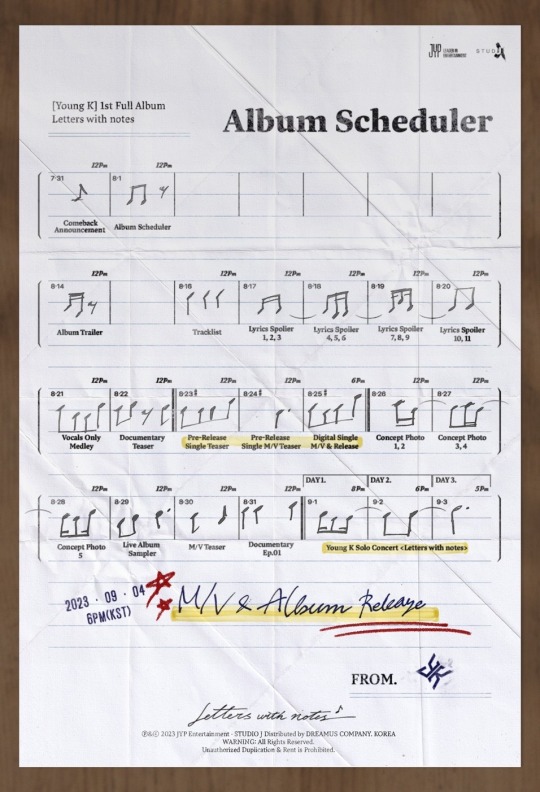 JYP LEADER IN ENTERTAINMENT STUDIO J
[Young K] 1st Full Album
Letters with notes
Album Scheduler
12Pm 12Pm
7·31 8·1
Comeback Announcement Album Scheduler
12Pm 12Pm 12Pm 12Pm 12Pm 12Pm
8·14 8·16 8·17 8·18 8·19 8·20
Album Trailer Tracklist Lyrics Spoiler 1, 2, 3 Lyrics Spoiler 4, 5, 6 Lyrics Spoiler 7, 8, 9 Lyrics Spoiler 10, 11
12Pm 12Pm 12Pm 12Pm 6Pm 12Pm 12Pm
8·21 8·22 8·23 8·24 8·25 8·26 8·27
Vocals Only Medley Documentary Teaser Pre-Release Single Teaser Pre-Release Single M/V Teaser Digital Single M/V & Release Concept Photo 1, 2 Concept Photo 3, 4
DAY1. DAY2. DAY3.
12Pm 12Pm 12Pm 12Pm 8Pm 6Pm 5Pm
8·28 8·29 8·30 8·31 9·1 9·2 9·3
Concept Photo 5 Live Album Sampler M/V Teaser Documentary Ep.01 Young K Solo Concert <Letters with notes>
2023 · 09 · 04
6PM(KST)
M/V & Album Release
FROM. YK
Letters with notes
℗&© 2023 JYP Entertainment · STUDIO J Distributed by DREAMUS COMPANY. KOREA
WARNING: All Rights Reserved.
Unauthorized Duplication & Rent is Prohibited.